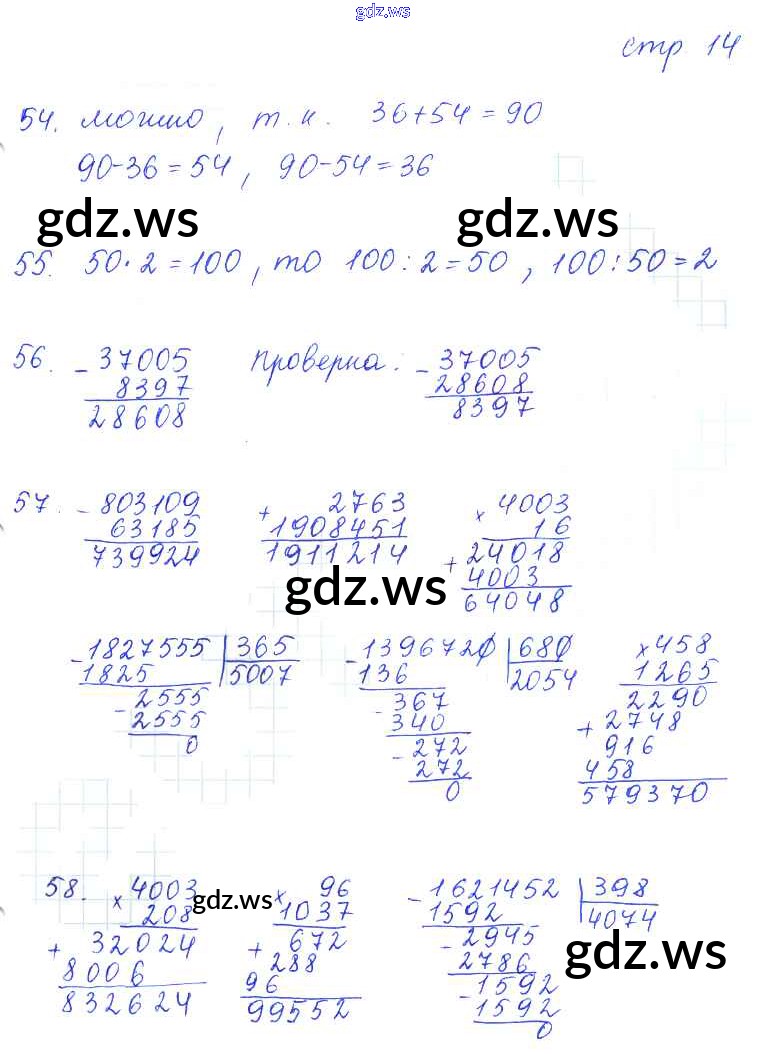 gdz.ws
стр 14
54. можно, т.к. 36+54=90
90-36=54, 90-54=36
gdz.ws gdz.ws
55. 50·2=100, то 100:2=50, 100:50=2
56. - 37005 Проверка: - 37005
8397 28608
28608 8397
57. - 803109 + 2763 × 4003
63185 1908451 16
739924 1911214 + 24018
gdz.ws 4003
64048
- 1827555 | 365 - 1396720 | 680 × 458
1825 5007 136 2054 1265
- 2555 - 367 2290
2555 340 + 2748
0 - 272 916
272 458
0 579370
58. × 4003 gdz.ws × 96 - 1621452 | 398
208 1037 1592 4074
+ 32024 + 672 - 2945
8006 288 2786 gdz.ws
832624 96 - 1592
99552 1592
0